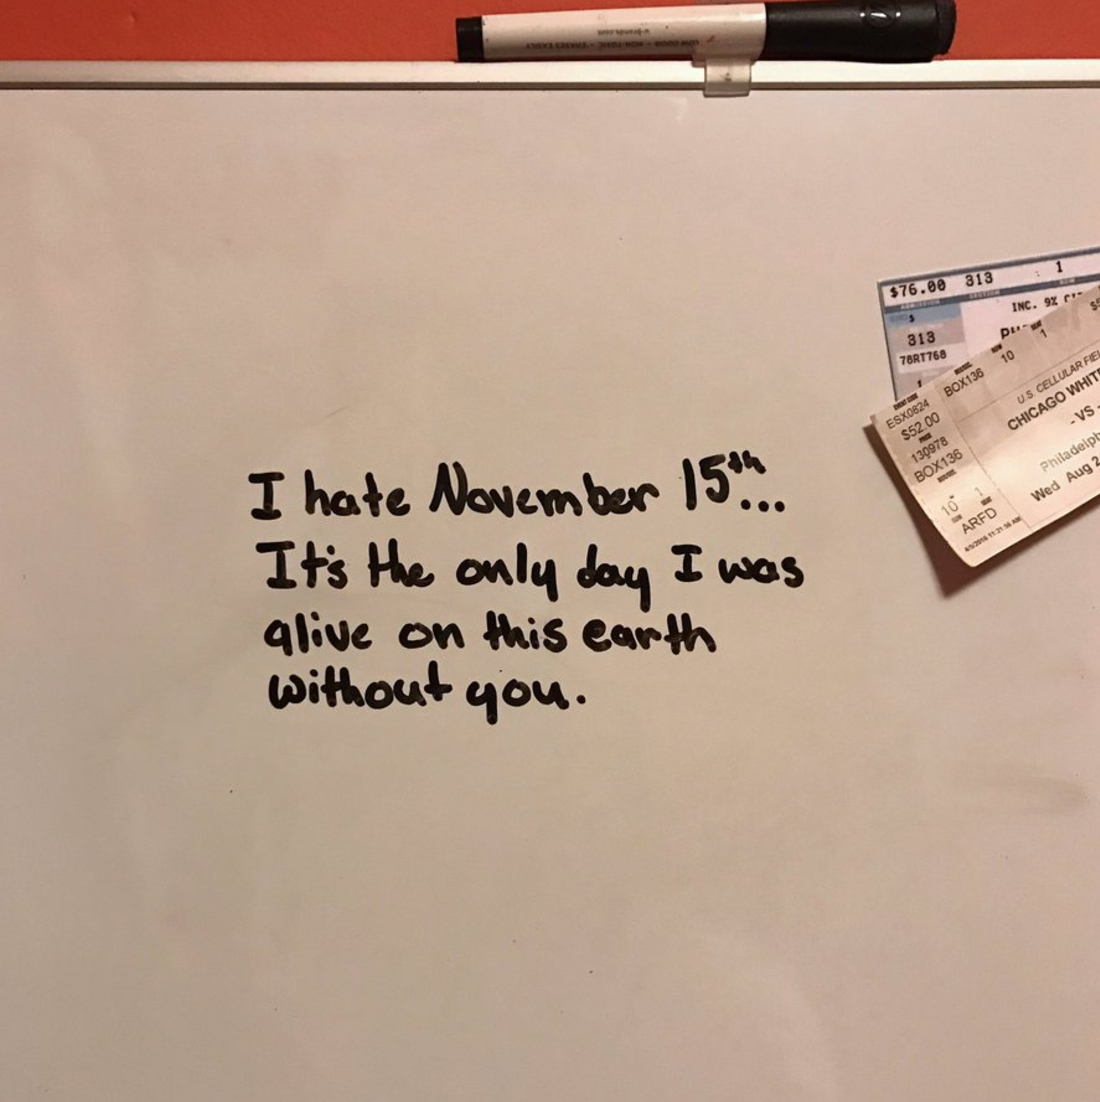 LOW ODOR - NON-TOXIC - ERASES EASILY
I hate November 15th...
It's the only day I was
alive on this earth
without you.
$76.00 313 1
INC. 9% CI
$
313
78RT768
1
BOX136 10 1
ESX0824
$52.00
130978
BOX136
10 1
ARFD
U.S. CELLULAR FIEL
CHICAGO WHITE
- VS -
Philadelph
Wed Aug 2